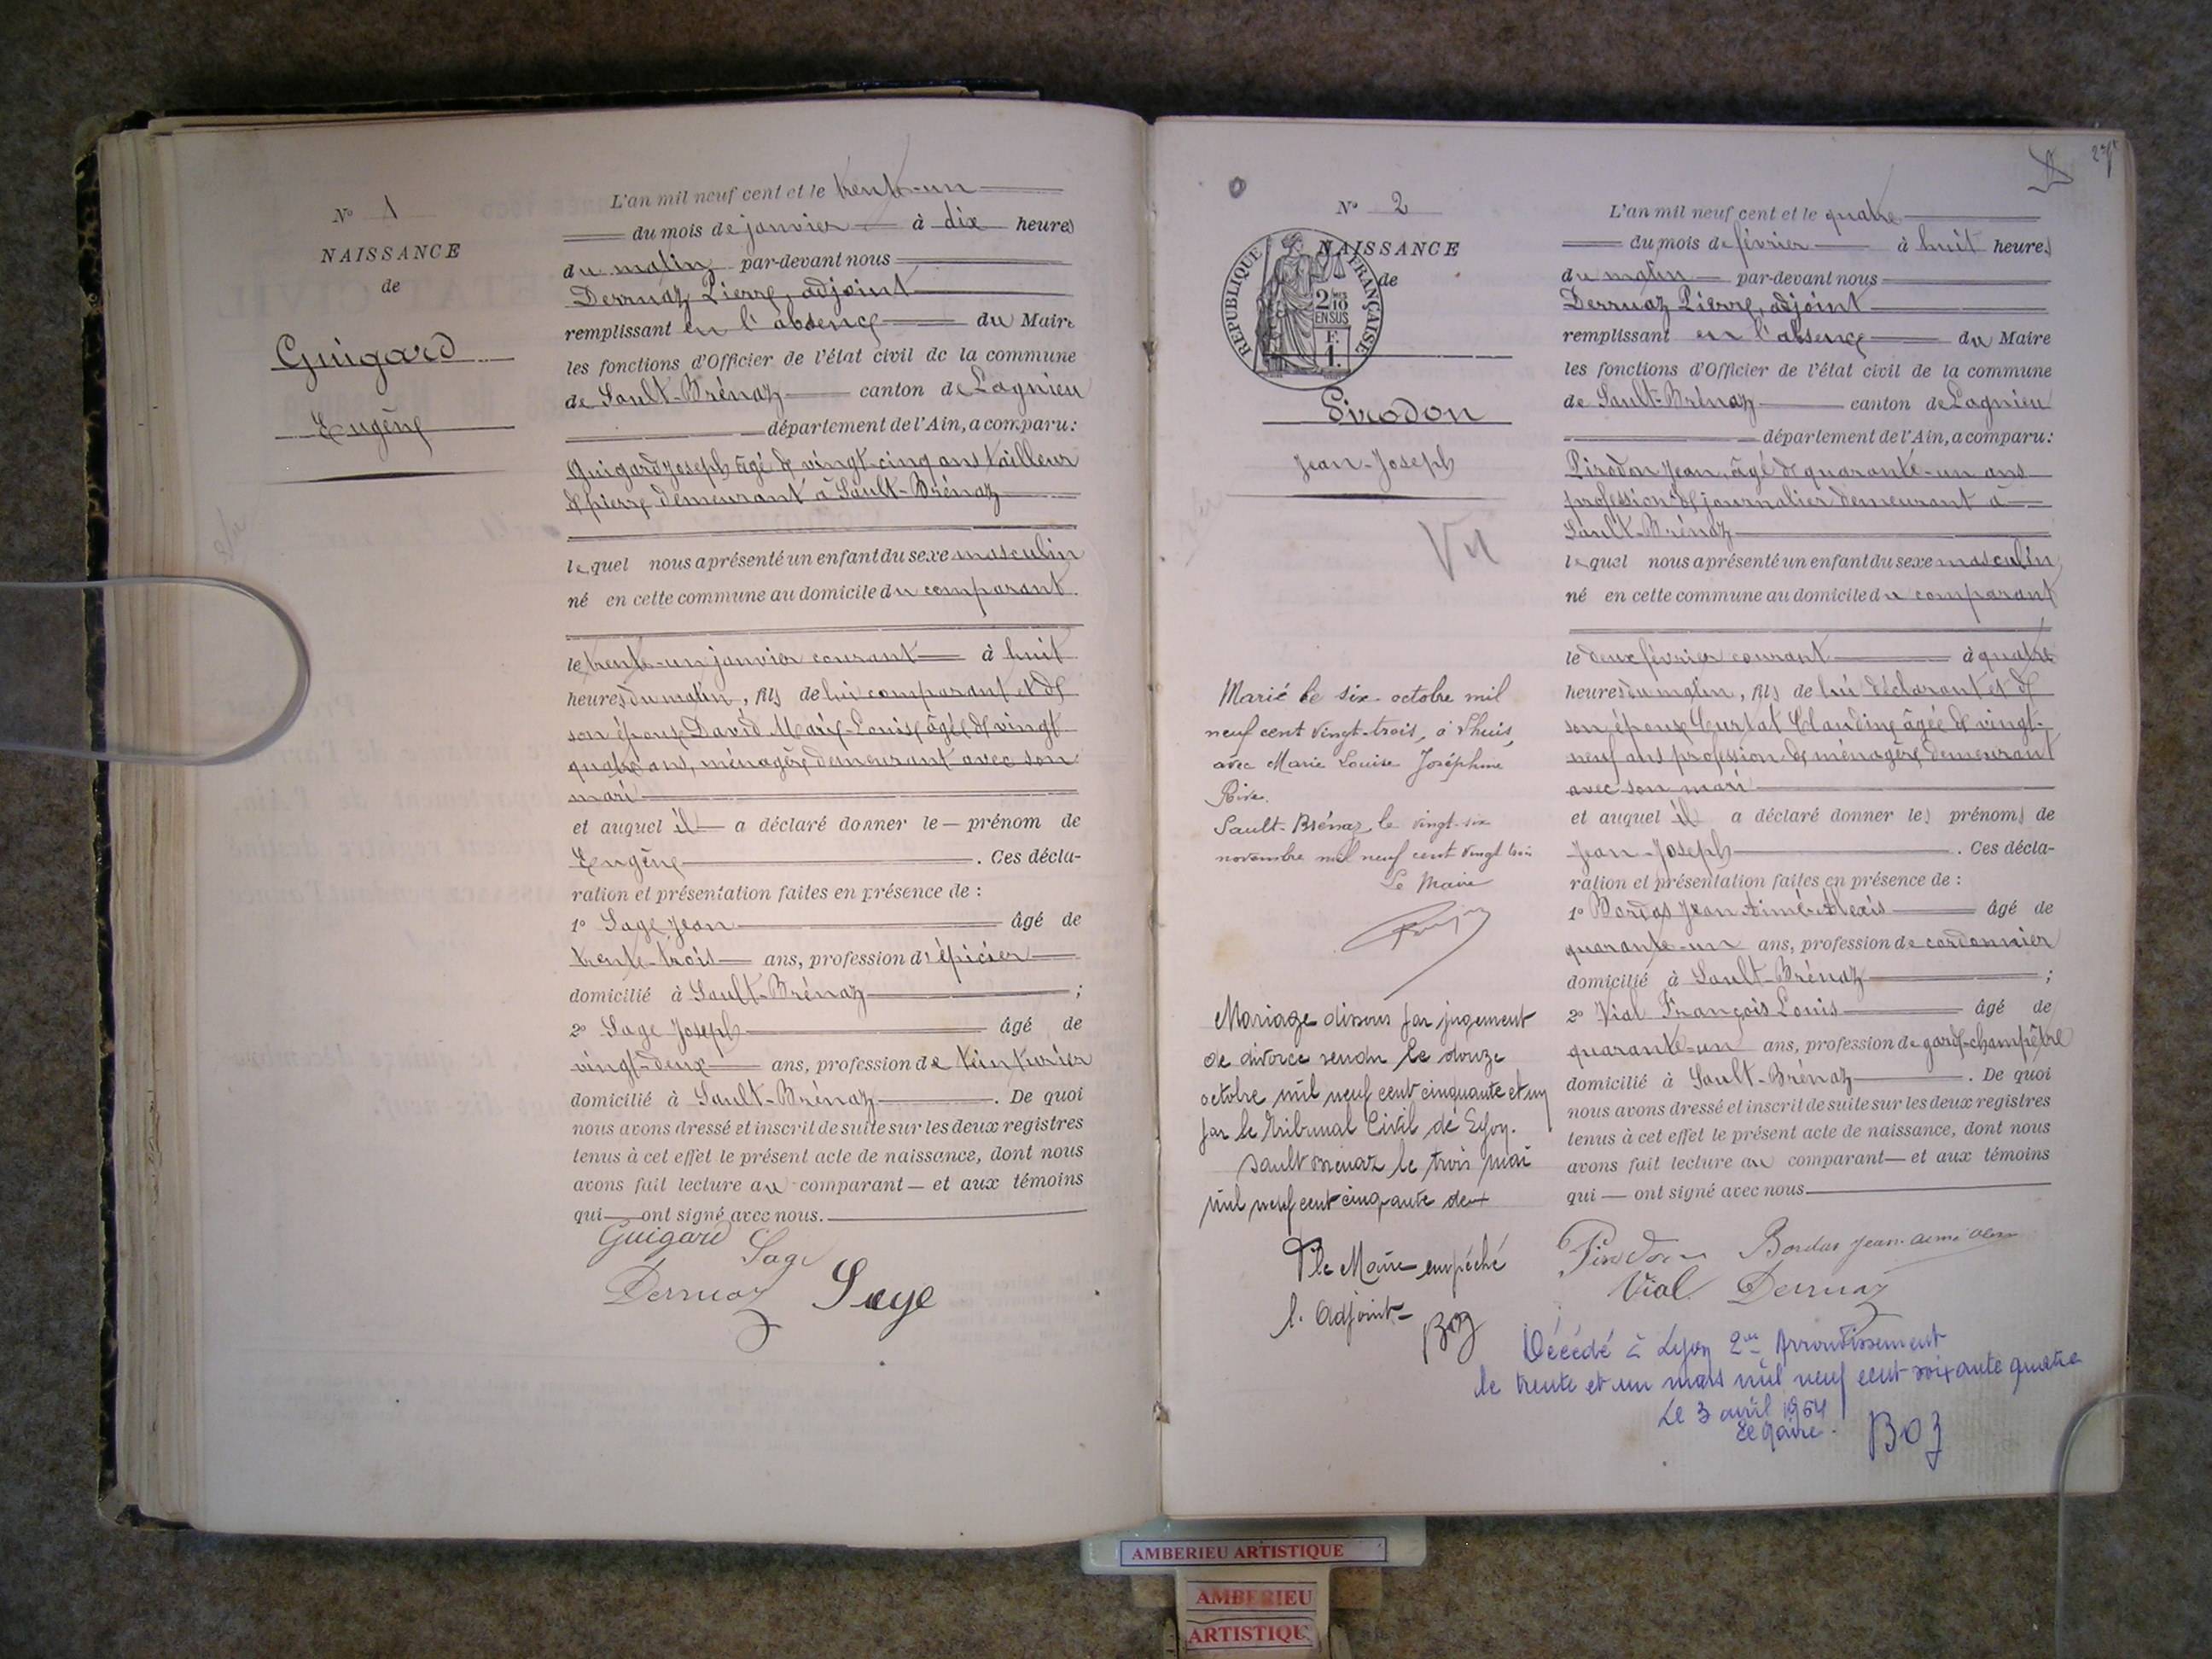 N° 1
NAISSANCE
de
Guigard
Eugène
L'an mil neuf cent et le trente-un
du mois de janvier à dix heures
du matin par-devant nous
Derruaz Pierre, adjoint
remplissant en l'absence du Maire
les fonctions d'Officier de l'état civil de la commune
de Sault-Brénaz canton de Lagnieu
département de l'Ain, a comparu:
Guigard Joseph âgé de vingt-cinq ans tailleur
de pierre demeurant à Sault-Brénaz
lequel nous a présenté un enfant du sexe masculin
né en cette commune au domicile du comparant.
le trente-un janvier courant à huit
heures du matin, fils de lui comparant et de
son épouse David Marie-Louise âgée de vingt
quatre ans, ménagère demeurant avec son
mari
et auquel il a déclaré donner le prénom de
Eugène. Ces décla-
ration et présentation faites en présence de :
1° Sage Jean âgé de
trente-trois ans, profession d'épicier
domicilié à Sault-Brénaz ;
2° Sage Joseph âgé de
vingt-deux ans, profession de teinturier
domicilié à Sault-Brénaz. De quoi
nous avons dressé et inscrit de suite sur les deux registres
tenus à cet effet le présent acte de naissance, dont nous
avons fait lecture au comparant et aux témoins
qui ont signé avec nous.
Guigard Sage
Derruaz Sage
N° 2
NAISSANCE
de
REPUBLIQUE FRANÇAISE
2/10
EN SUS
F.
1.
Pirodon
Jean-Joseph
Vu
Marié le six octobre mil
neuf cent vingt-trois, à Lhuis,
avec Marie Louise Joséphine
Rive.
Sault-Brénaz, le vingt-six
novembre mil neuf cent vingt trois
Le Maire
Mariage dissous par jugement
de divorce rendu le douze
octobre mil neuf cent cinquante et un
par le Tribunal Civil de Lyon.
Sault Brénaz le trois mai
mil neuf cent cinquante deux
P le Maire empêché
l. Adjoint
Boz
L'an mil neuf cent et le quatre
du mois de février à huit heures
du matin par-devant nous
Derruaz Pierre, adjoint
remplissant en l'absence du Maire
les fonctions d'Officier de l'état civil de la commune
de Sault-Brénaz canton de Lagnieu
département de l'Ain, a comparu:
Pirodon Jean, âgé de quarante-un ans
profession de journalier demeurant à
Sault-Brénaz
lequel nous a présenté un enfant du sexe masculin
né en cette commune au domicile du comparant
le deux février courant à quatre
heures du matin, fils de lui déclarant et de
son épouse Claudine âgée de vingt-
neuf ans profession de ménagère demeurant
avec son mari
et auquel il a déclaré donner les prénoms de
Jean-Joseph. Ces décla-
ration et présentation faites en présence de :
1° Bordas Jean Aimé Alexis âgé de
quarante-un ans, profession de cordonnier
domicilié à Sault-Brénaz ;
2° Vial François Louis âgé de
quarante-un ans, profession de garde-champêtre
domicilié à Sault-Brénaz. De quoi
nous avons dressé et inscrit de suite sur les deux registres
tenus à cet effet le présent acte de naissance, dont nous
avons fait lecture au comparant et aux témoins
qui ont signé avec nous
Pirodon Bordas Jean aimé
Vial Derruaz
Décédé à Lyon 2me Arrondissement
le trente et un mars mil neuf cent soixante quatre
Le 3 avril 1964
Le Maire. Boz
AMBERIEU ARTISTIQUE
AMBERIEU
ARTISTIQUE